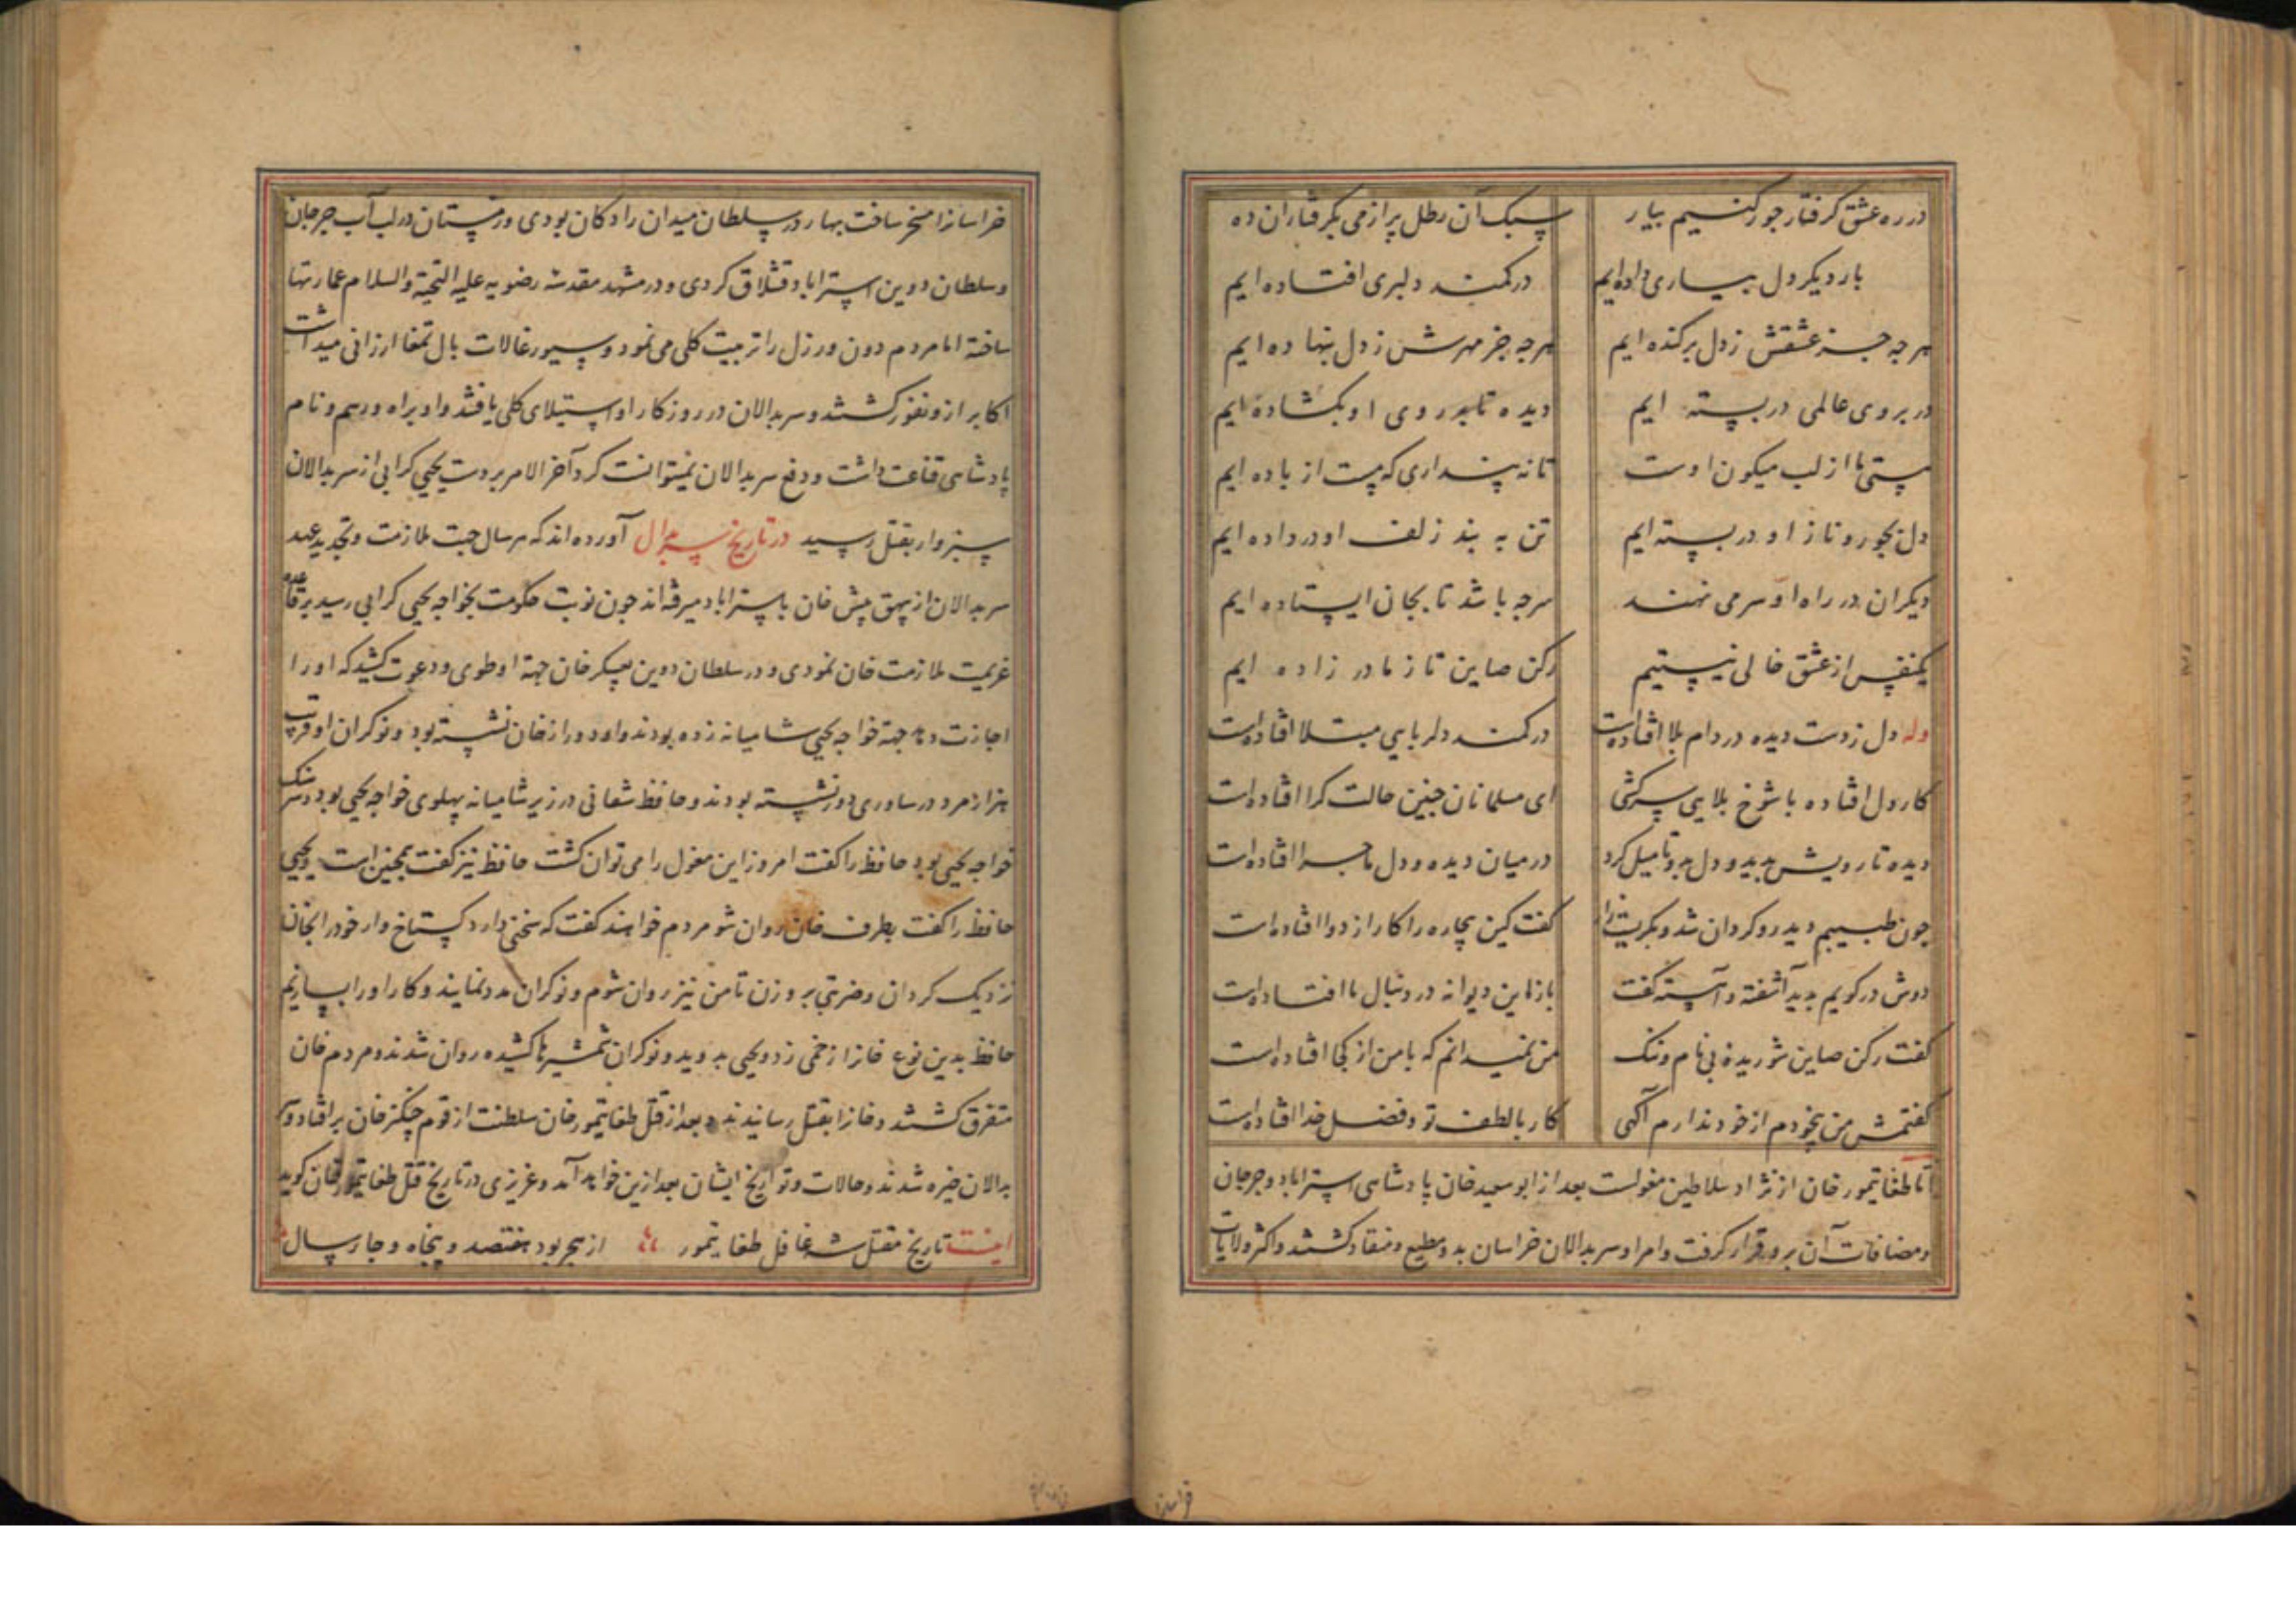 در ره عشق گرفتار جو رکنیم بیار سبک آن رطل پر از می بگرفتاران ده
بار دیگر دل بیاری داده‌ایم در کمند دلبری افتاده ایم
هرچه جز عشقش ز دل برکنده ایم هرچه جز مهرش ز دل بنهاده ایم
در بروی عالمی در بسته ایم دیده تا بر روی او بگشاده ایم
مستی ما از لب میکون اوست تا نه پنداری که مست از باده ایم
دل بجور و ناز او در بسته ایم تن به بند زلف او در داده ایم
دیگران در راه او سر می نهند هرچه باشد تا بجان ایستاده ایم
یکنفس از عشق خالی نیستیم رکن صاین تا ز مادر زاده ایم
وله دل ز دست دیده در دام بلا افتاده است در کمند دلربایی مبتلا افتاده است
کار دل افتاده با شوخ بلایی سرکشی ای مسلمانان جنین حالت کرا افتاده است
دیده تا رویش بدید و دل بدو تا میل کرد در میان دیده و دل ماجرا افتاده است
جون طبیبم دید رو کردان شد و بکریت زار کفت کین بیچاره را کار از دوا افتاده است
دوش در کویم بدید آشفته و آهسته کفت باز این دیوانه در دنبال ما افتاده است
کفت رکن صاین شوریدهٔ بی نام و ننک من نمیدانم که با من از کجا افتاده است
کفتمش من بیخودم از خود ندارم آکهی کار با لطف تو و فضل خدا افتاده است
اما طغا تیمور خان از نژاد سلاطین مغولست بعد از ابو سعید خان پادشاهی استراباد و جرجان
و مضافات آن برو قرار گرفت و امرا و سربدالان خراسان بدو مطیع و منقاد کشتند و اکثر ولایات
خراسانرا مسخر ساخت بهار در سلطان میدان رادکان بودی و زمستان در لب آب جرجان
و سلطان دوین استراباد قشلاق کردی و در مشهد مقدسه رضویه علیه التحیة والسلام عمارتها
ساخته اما مردم دون و رزل را تربیت کلی می نمود و سیورغالات بال تمغا ارزانی میداشت
اکابر ازو نفور کشتند و سربدالان در روزکار او استیلای کلی یافتند و او براه و رسم و نام
پادشاهی قناعت داشت و دفع سربدالان نمیتوانست کرد آخر الامر بر دست یحیی کرابی از سربدالان
سبزوار بقتل رسید در تاریخ سربدال آورده اند که هر سال جهت ملازمت و تجدید عهد
سربدالان از بیهق پیش خان باستراباد میرفته اند جون نوبت حکومت بخواجه یحیی کرابی رسید بر قاعده
عزیمت ملازمت خان نمودی و در سلطان دوین بعسکر خان جهة او طوی و دعوت کشید که او را
اجازت دهد جهة خواجه یحیی شامیانه زده بودند و او دور از خان نشسته بود و نوکران او قرب
هزار مرد در ساوری دور نشسته بودند و حافظ شغانی در زیر شامیانه پهلوی خواجه یحیی بود و سرهنک
خواجه یحیی بود حافظ را کفت امروز این مغول را می توان کشت حافظ نیز کفت همجنین است یحیی
حافظ را کفت بطرف خان روان شو مردم خواهند کفت که سخنی دارد کستاخ وار خود را بخان
نزدیک کردان و ضربتی برو زن تا من نیز روان شوم و نوکران مدد نمایند و کار او را بسازیم
حافظ بدین نوع خانرا زخمی زد و یحیی بدوید و نوکران شمشیرها کشیده روان شدند و مردم خان
متفرق کشتند و خانرا بقتل رسانیدند و بعد از قتل طغا تیمور خان سلطنت از قوم چنکز خان بر افتاد و سر
بدالان خیره شدند و حالات و تواریخ ایشان بعد ازین خواهد آمد و عزیزی در تاریخ قتل طغا تیمور خان کوید
تاریخ مقتل شه غافل طغا تیمور از هجر بود هفتصد و پنجاه و جار سال